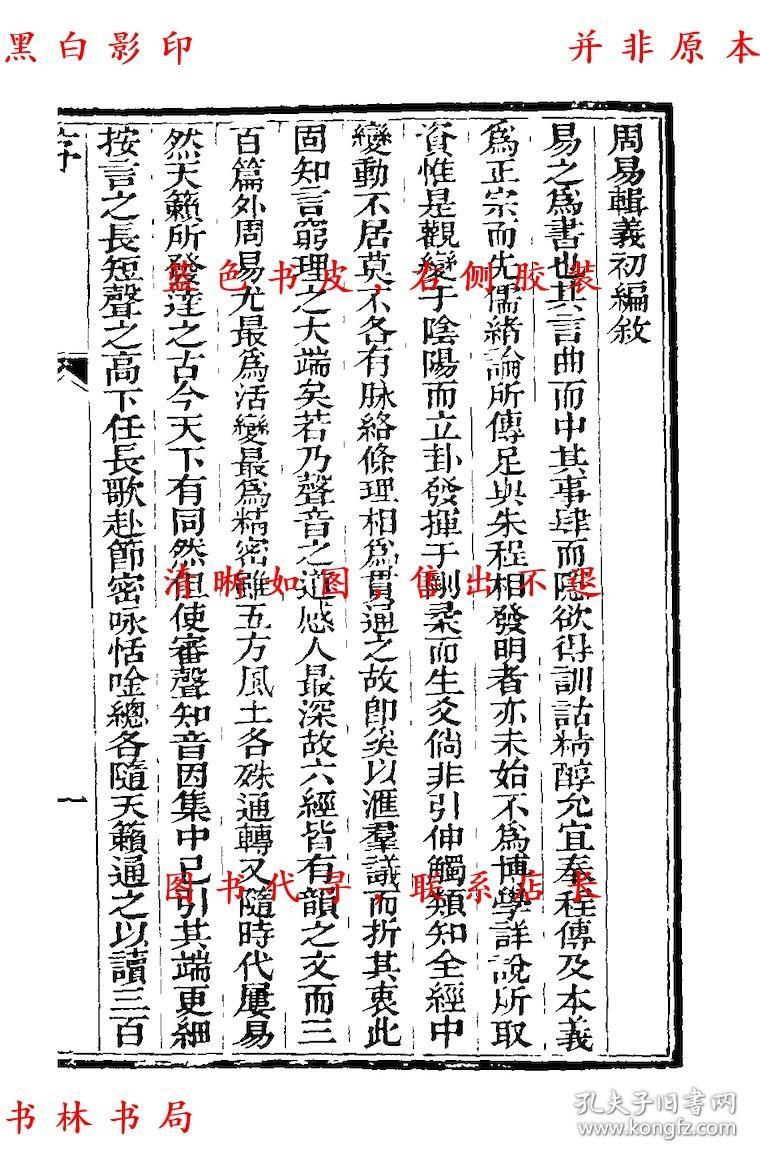 黑白影印
并非原本
周易輯義初編敘
易之為書也其言曲而中其事肆而隱欲得訓詁精醇允宜奉程傳及本義
為正宗而先儒緒論所傳足與朱程相發明者亦未始不為博學詳說所取
資惟是觀變于陰陽而立卦發揮于剛柔而生爻倘非引伸觸類知全經中
變動不居莫不各有脉絡條理相為貫通之故卽奚以滙羣議而折其衷此
固知言窮理之大端矣若乃聲音之道感人最深故六經皆有韻之文而三
百篇外周易尤最為活變最為精密雖五方風土各殊通轉又隨時代屢易
然天籟所發達之古今天下有同然但使審聲知音因集中已引其端更細
按言之長短聲之高下任長歌赴節密咏恬唫總各隨天籟通之以讀三百
序
一
蓝色书皮，右侧胶装
清晰如图，售出不退
图书代寻，联系店长
书林书局
孔夫子旧书网
www.kongfz.com